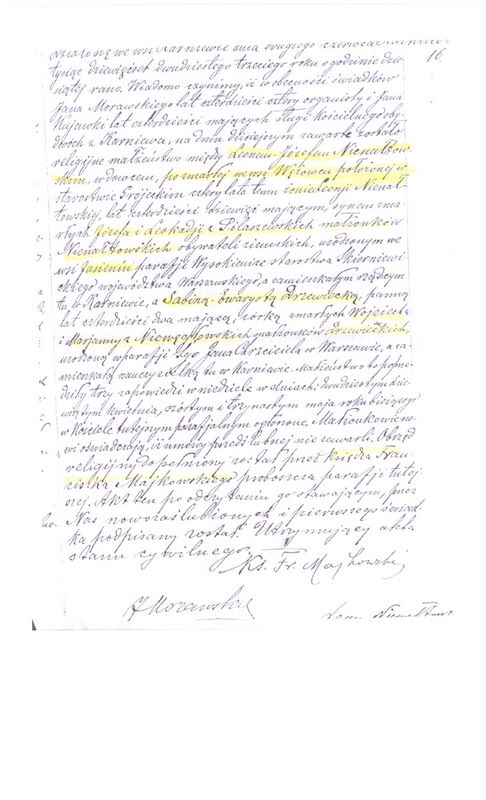 Działo się we wsi Karniewie dnia drugiego czerwca
16
tysiąc dziewięćset dwudziestego trzeciego roku o godzinie dzie
siątej rano. Wiadomo czynimy, iż w obecności świadków
Jana Morawskiego lat czterdzieści cztery organisty i Jana
Kujawki lat czterdzieści mających sługi kościelnego oby
dwóch z Karniewa, na dniu dzisiejszym zawarte zostało
religijne małżeństwo między Leonem-Józefem Nienałtow
skim, wdowcem, po zmarłej we wsi położonej w
starostwie Grójeckim cztery lata temu Nienał
towskiej, lat czterdzieści dziewięć mającym, synem zma
rłych Józefa i Leokadji z Pilaszewskich małżonków
Nienałtowskich obywateli ziemskich, urodzonym we
wsi Jasieniu parafji Wysokienice starostwa Skierniewi
ckiego województwa Warszawskiego, a zamieszkałym rządcym
tu w Karniewie, a Sabiną-Ewarystą Drzewiecką, panną
lat czterdzieści dwa mającą, córką zmarłych Wojciecha
i Marjanny z małżonków Drzewieckich,
urodzoną w parafji Jana Chrzciciela w Warszawie, a za
mieszkałą nauczycielką tu w Karniewie. Małżeństwo to poprze
dziły trzy zapowiedzi w niedziele w dniach: dwudziestym dzie
wiątym kwietnia, szóstym i trzynastym maja roku bieżącego
w Kościele tutejszym parafjalnym ogłoszone. Małżonkowie no
wi oświadczają, iż umowy przedślubnej nie zawarli. Obrzęd
religijny dopełniony został przez księdza Fran
ciszka Majkowskiego proboszcza parafji tutej
szej. Akt ten po odczytaniu go stawającym, przez
Nas nowozaślubionych i pierwszego świad
ka podpisany został. Utrzymujący akta
stanu cywilnego
Ks. Fr. Majkowski
J Morawski